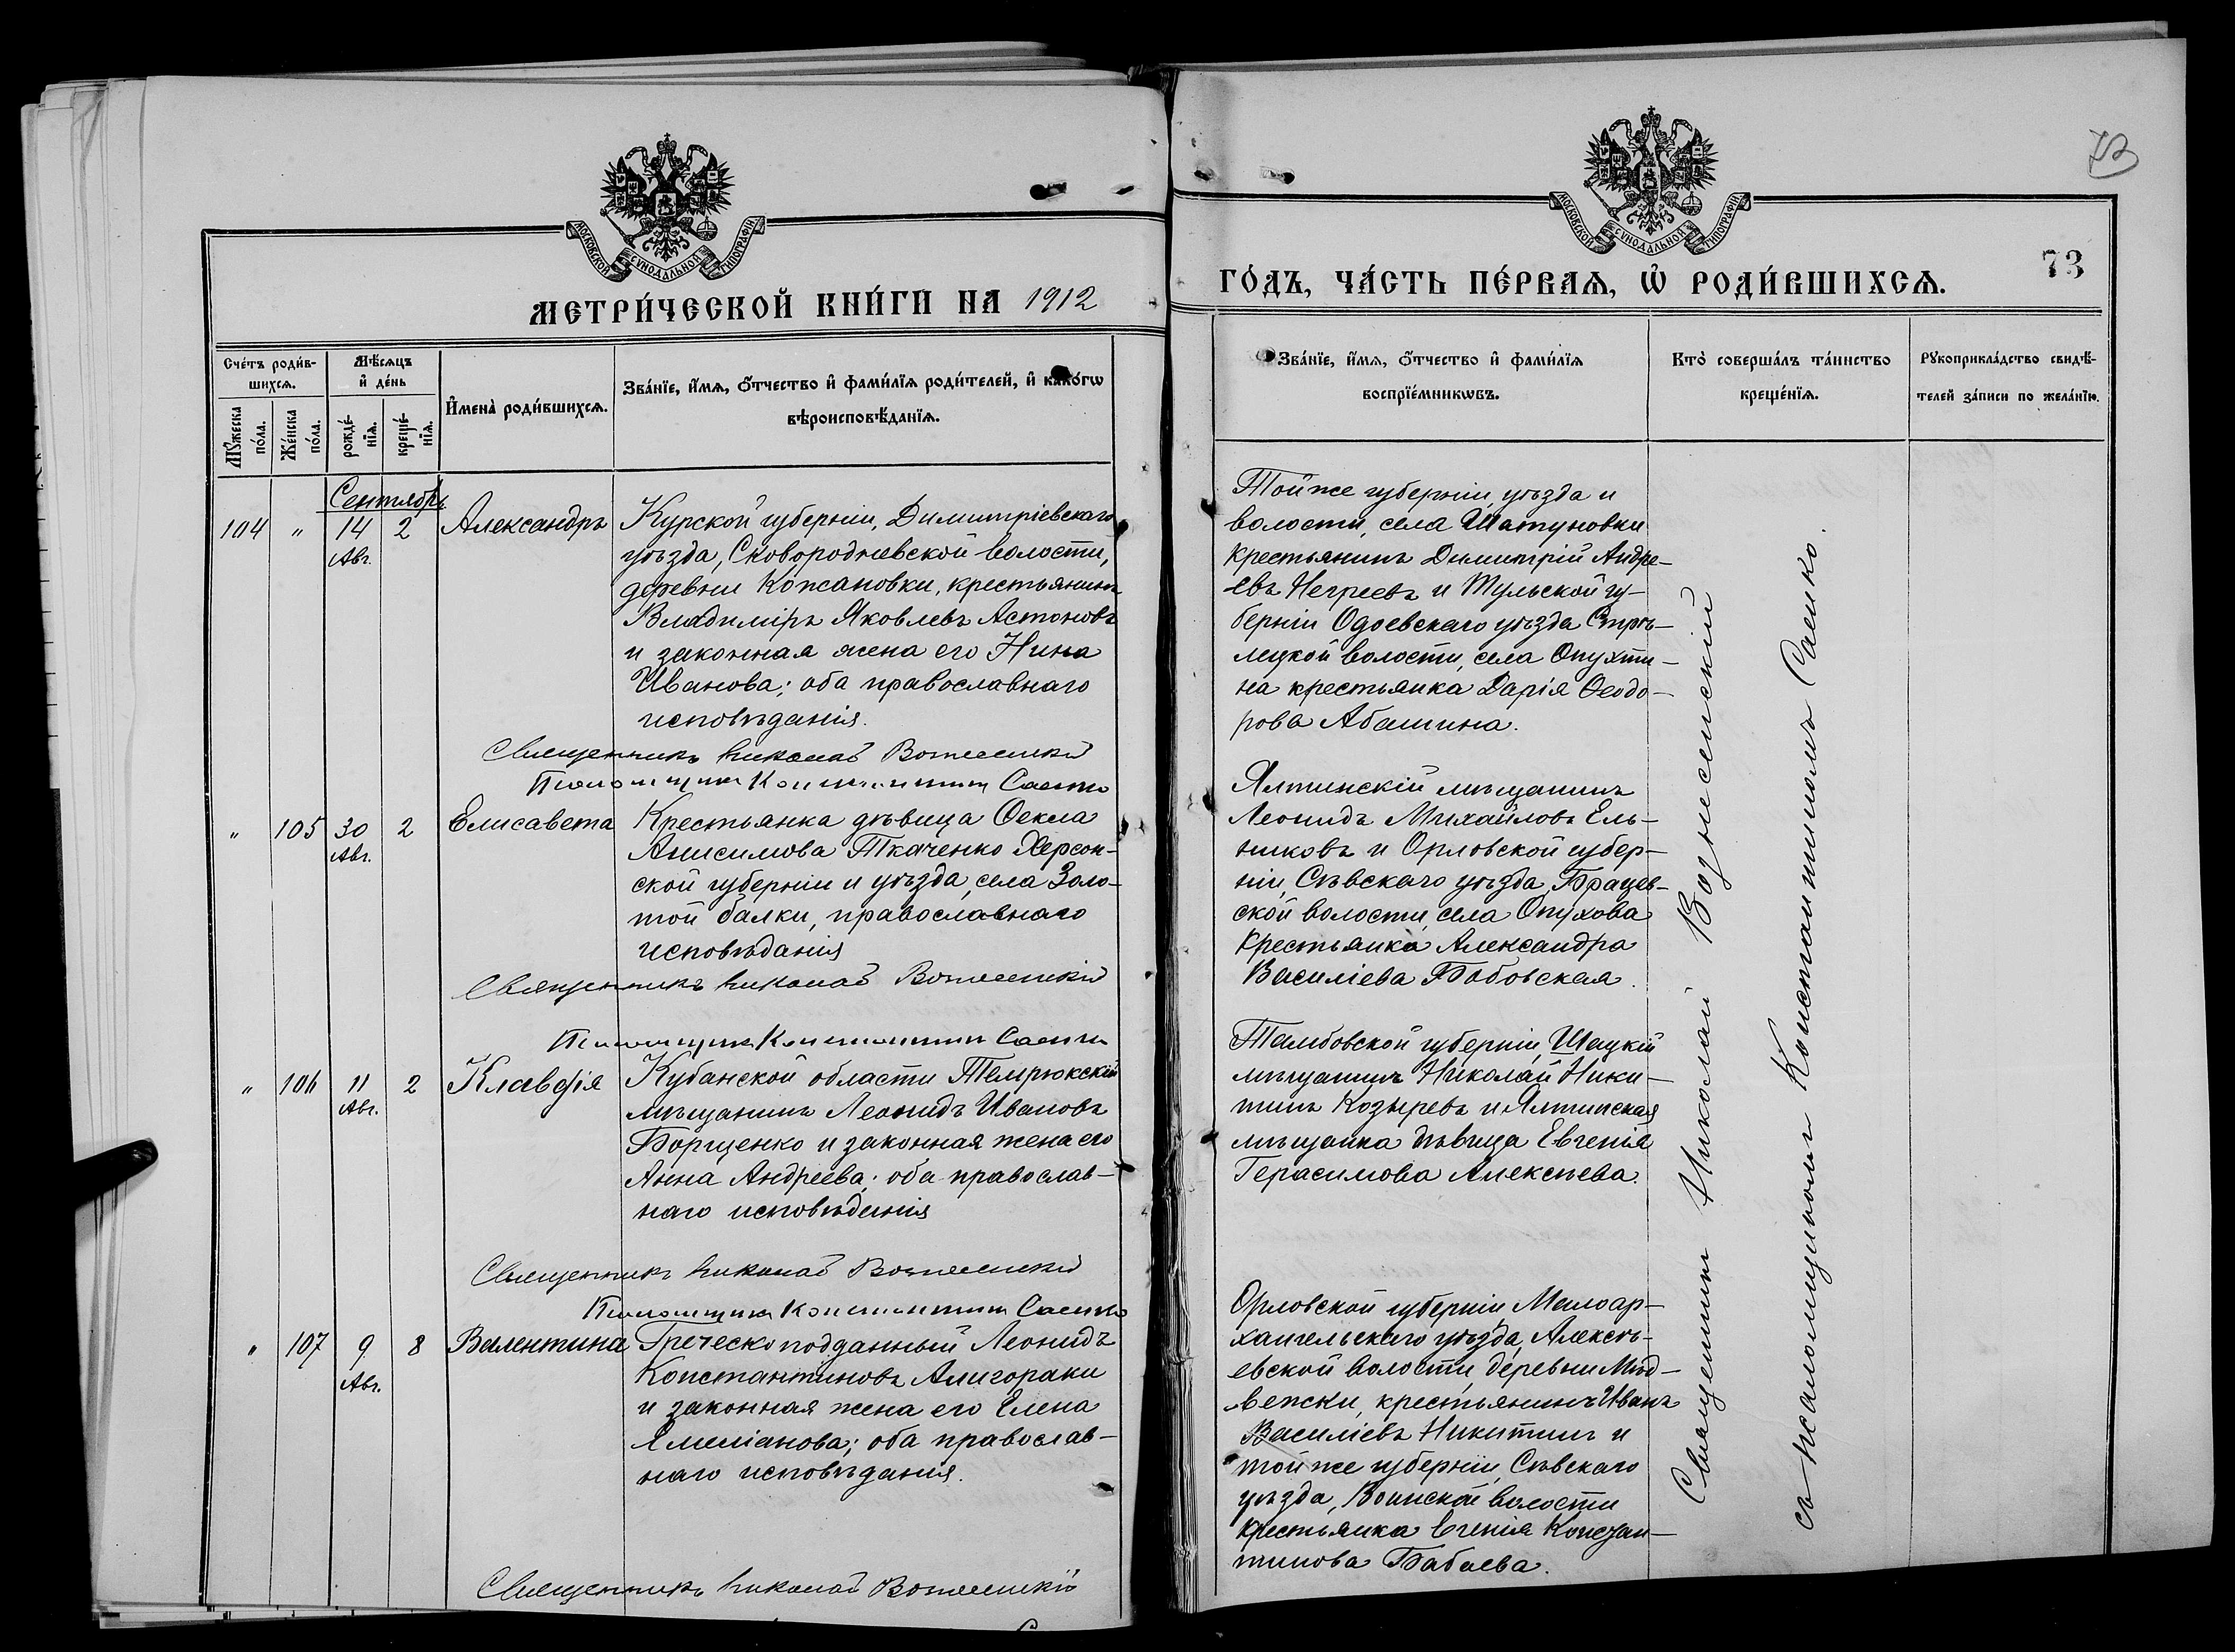 МОСКОВСКОЙ СѴНОДАЛЬНОЙ ТИПОГРАФІИ
МЕТРИ́ЧЕСКОЙ КНИ́ГИ НА 1912
Сче́тъ роди́в-
шихсѧ.
Мѣ́сѧцъ
и҆ де́нь
Мꙋ́жеска
по́ла.
Же́нска
по́ла.
рожде́-
нїѧ.
креще́-
нїѧ.
И҆мена̀ роди́вшихсѧ.
Зва́нїе, и҆́мѧ, ѻ҆́тчество и҆ фами́лїѧ роди́телей, и҆ како́гѡ
вѣроисповѣ́данїѧ.
Сентябрь
104 " 14 2 Александръ
Авг.
Курской губерніи, Димитріевскаго
уѣзда, Сковородневской волости,
деревни Кожановки, крестьянинъ
Владиміръ Яковлевъ Астоновъ
и законная жена его Нина
Иванова; оба православнаго
исповѣданія.
Священникъ Николай Вознесенскій
Псаломщикъ Константинъ Саенко
" 105 30 2 Елисавета
Авг.
Крестьянка дѣвица Ѳекла
Анисимова Ткаченко Херсон-
ской губерніи и уѣзда, села Золо-
той балки, православнаго
исповѣданія
Священникъ Николай Вознесенскій
Псаломщикъ Константинъ Саенко
" 106 11 2 Клавдія
Авг.
Кубанской области Темрюкскій
мѣщанинъ Леонидъ Ивановъ
Борщенко и законная жена его
Анна Андреева; оба православ-
наго исповѣданія
Священникъ Николай Вознесенскій
Псаломщикъ Константинъ Саенко
" 107 9 8 Валентина
Авг.
Греческоподданный Леонидъ
Константиновъ Алигораки
и законная жена его Елена
Емеліанова; оба православ-
наго исповѣданія.
Священникъ Николай Вознесенскій
73
МОСКОВСКОЙ СѴНОДАЛЬНОЙ ТИПОГРАФІИ
73
ГО́ДЪ, ЧА́СТЬ ПЕ́РВАѦ, Ѡ҆ РОДИ́ВШИХСѦ.
Зва́нїе, и҆́мѧ, ѻ҆́тчество и҆ фами́лїѧ
воспрїе́мникѡвъ.
Кто̀ соверша́лъ та́инство
креще́нїѧ.
Рꙋкоприкла́дство свидѣ́-
телей за́писи по жела́нїю.
Той же губерніи, уѣзда и
волости, села Шатуновки
крестьянинъ Димитрій Андре-
евъ Негреевъ и Тульской гу-
берніи Одоевскаго уѣзда Стрѣ-
лецкой волости, села Опухти-
на крестьянка Дарія Ѳеодо-
рова Абашина.
Ялтинскій мѣщанинъ
Леонидъ Михайловъ Ель-
никовъ и Орловской губер-
ніи, Сѣвскаго уѣзда, Брацев-
ской волости, села Опухова
крестьянка Александра
Василіева Бобовская.
Тамбовской губерніи, Шацкій
мѣщанинъ Николай Ники-
тинъ Козыревъ и Ялтинская
мѣщанка дѣвица Евгенія
Герасимова Алексѣева.
Орловской губерніи, Малоар-
хангельскаго уѣзда, Алексѣ-
евской волости, деревни Мѣд-
вежки, крестьянинъ Иванъ
Василіевъ Никитинъ и
той же губерніи, Сѣвскаго
уѣзда, Воинской волости
крестьянка Евгенія Констан-
тинова Бабаева.
Священникъ Николай Вознесенскій
съ псаломщикомъ Константиномъ Саенко.